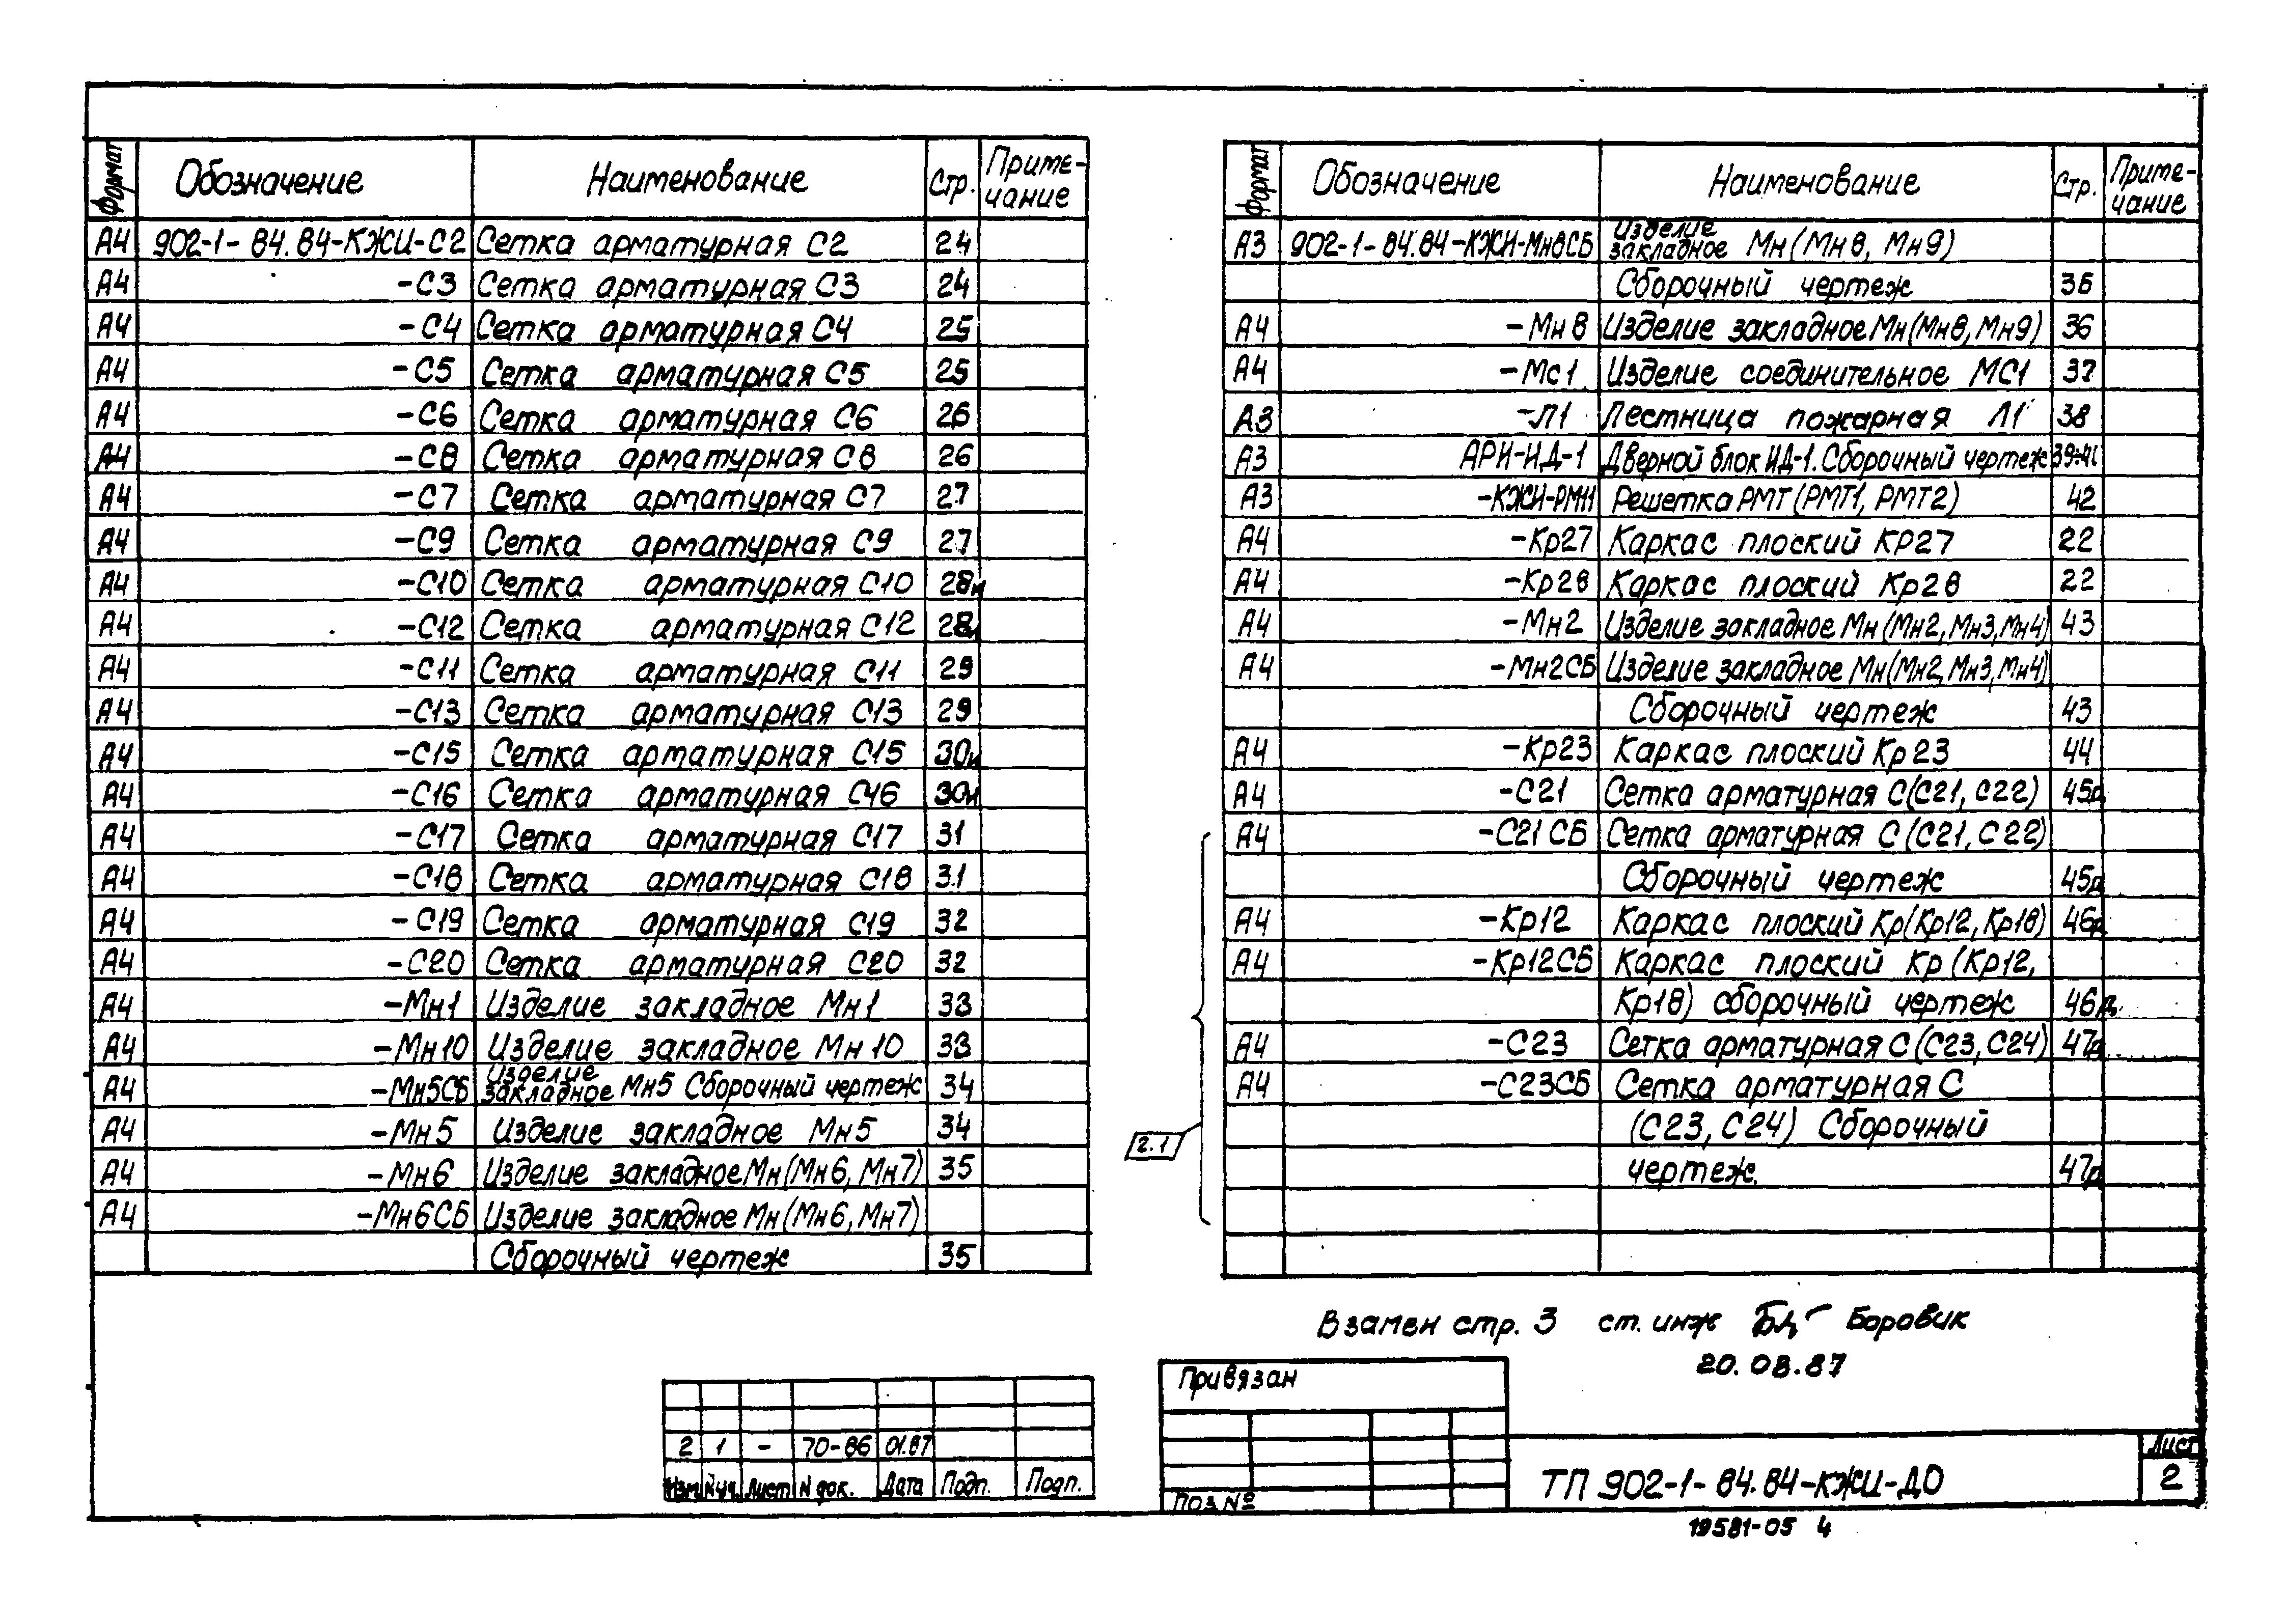 Формат Обозначение Наименование Стр. Приме-
чание
А4 902-1-84.84-КЖИ-С2 Сетка арматурная С2 24
А4 -С3 Сетка арматурная С3 24
А4 -С4 Сетка арматурная С4 25
А4 -С5 Сетка арматурная С5 25
А4 -С6 Сетка арматурная С6 26
А4 -С8 Сетка арматурная С8 26
А4 -С7 Сетка арматурная С7 27
А4 -С9 Сетка арматурная С9 27
А4 -С10 Сетка арматурная С10 28и
А4 -С12 Сетка арматурная С12 28и
А4 -С11 Сетка арматурная С11 29
А4 -С13 Сетка арматурная С13 29
А4 -С15 Сетка арматурная С15 30и
А4 -С16 Сетка арматурная С16 30и
А4 -С17 Сетка арматурная С17 31
А4 -С18 Сетка арматурная С18 31
А4 -С19 Сетка арматурная С19 32
А4 -С20 Сетка арматурная С20 32
А4 -Мн1 Изделие закладное Мн1 33
А4 -Мн10 Изделие закладное Мн10 33
А4 -Мн5СБ Изделие закладное Мн5 Сборочный чертеж 34
А4 -Мн5 Изделие закладное Мн5 34
А4 -Мн6 Изделие закладное Мн(Мн6, Мн7) 35
А4 -Мн6СБ Изделие закладное Мн(Мн6, Мн7)
Сборочный чертеж 35
Формат Обозначение Наименование Стр. Приме-
чание
А3 902-1-84.84-КЖИ-Мн8СБ Изделие закладное Мн(Мн8, Мн9)
Сборочный чертеж 36
А4 -Мн8 Изделие закладное Мн(Мн8, Мн9) 36
А4 -Мс1 Изделие соединительное МС1 37
А3 -Л1 Лестница пожарная Л1 38
А3 АРИ-ИД-1 Дверной блок ИД-1. Сборочный чертеж 39÷41
А3 -КЖИ-РМТ1 Решетка РМТ(РМТ1, РМТ2) 42
А4 -Кр27 Каркас плоский КР27 22
А4 -Кр28 Каркас плоский Кр28 22
А4 -Мн2 Изделие закладное Мн(Мн2, Мн3, Мн4) 43
А4 -Мн2СБ Изделие закладное Мн(Мн2, Мн3, Мн4)
Сборочный чертеж 43
А4 -Кр23 Каркас плоский Кр23 44
А4 -С21 Сетка арматурная С(С21, С22) 45д
А4 -С21СБ Сетка арматурная С(С21, С22)
Сборочный чертеж 45д
А4 -Кр12 Каркас плоский Кр(Кр12, Кр18) 46д
А4 -Кр12СБ Каркас плоский Кр(Кр12,
Кр18) сборочный чертеж 46д
А4 -С23 Сетка арматурная С(С23, С24) 47д
А4 -С23СБ Сетка арматурная С
(С23, С24) Сборочный
чертеж. 47д
2.1
Взамен стр. 3 ст. инж Боровик
20.08.87
2 1 - 70-86 01.87
Изм N уч. Лист N док. Дата Подп. Подп.
Привязан
Поз. №
ТП 902-1-84.84-КЖИ-ДО
Лист
2
19581-05 4